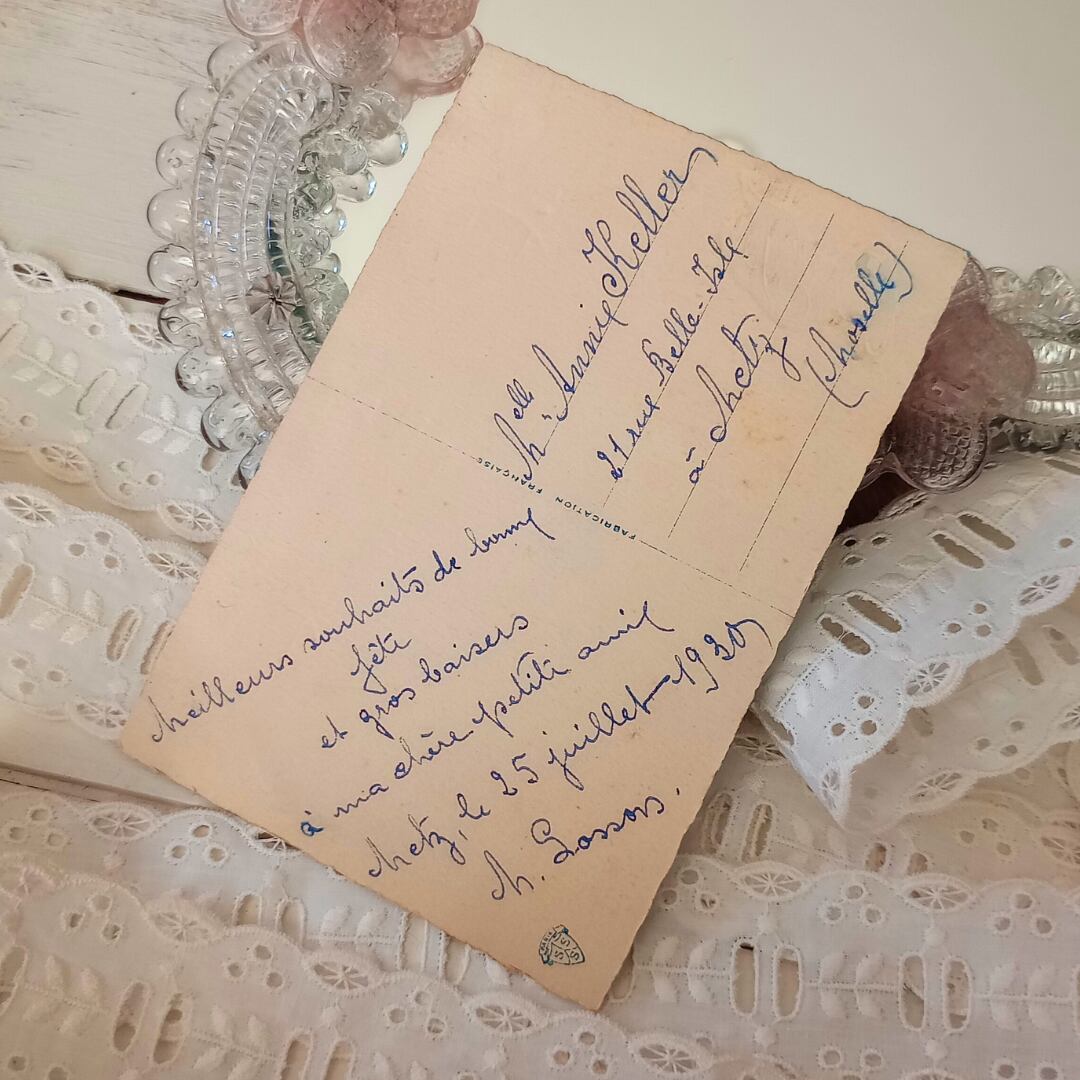 Meilleurs souhaits de bonne
fête
et gros baisers
à ma chère petite amie
Metz, le 25 juillet 1930
M. Lossors.
FABRICATION FRANÇAISE
Melle Annie Keller
21 rue Belle-Isle
à Metz
(Moselle)